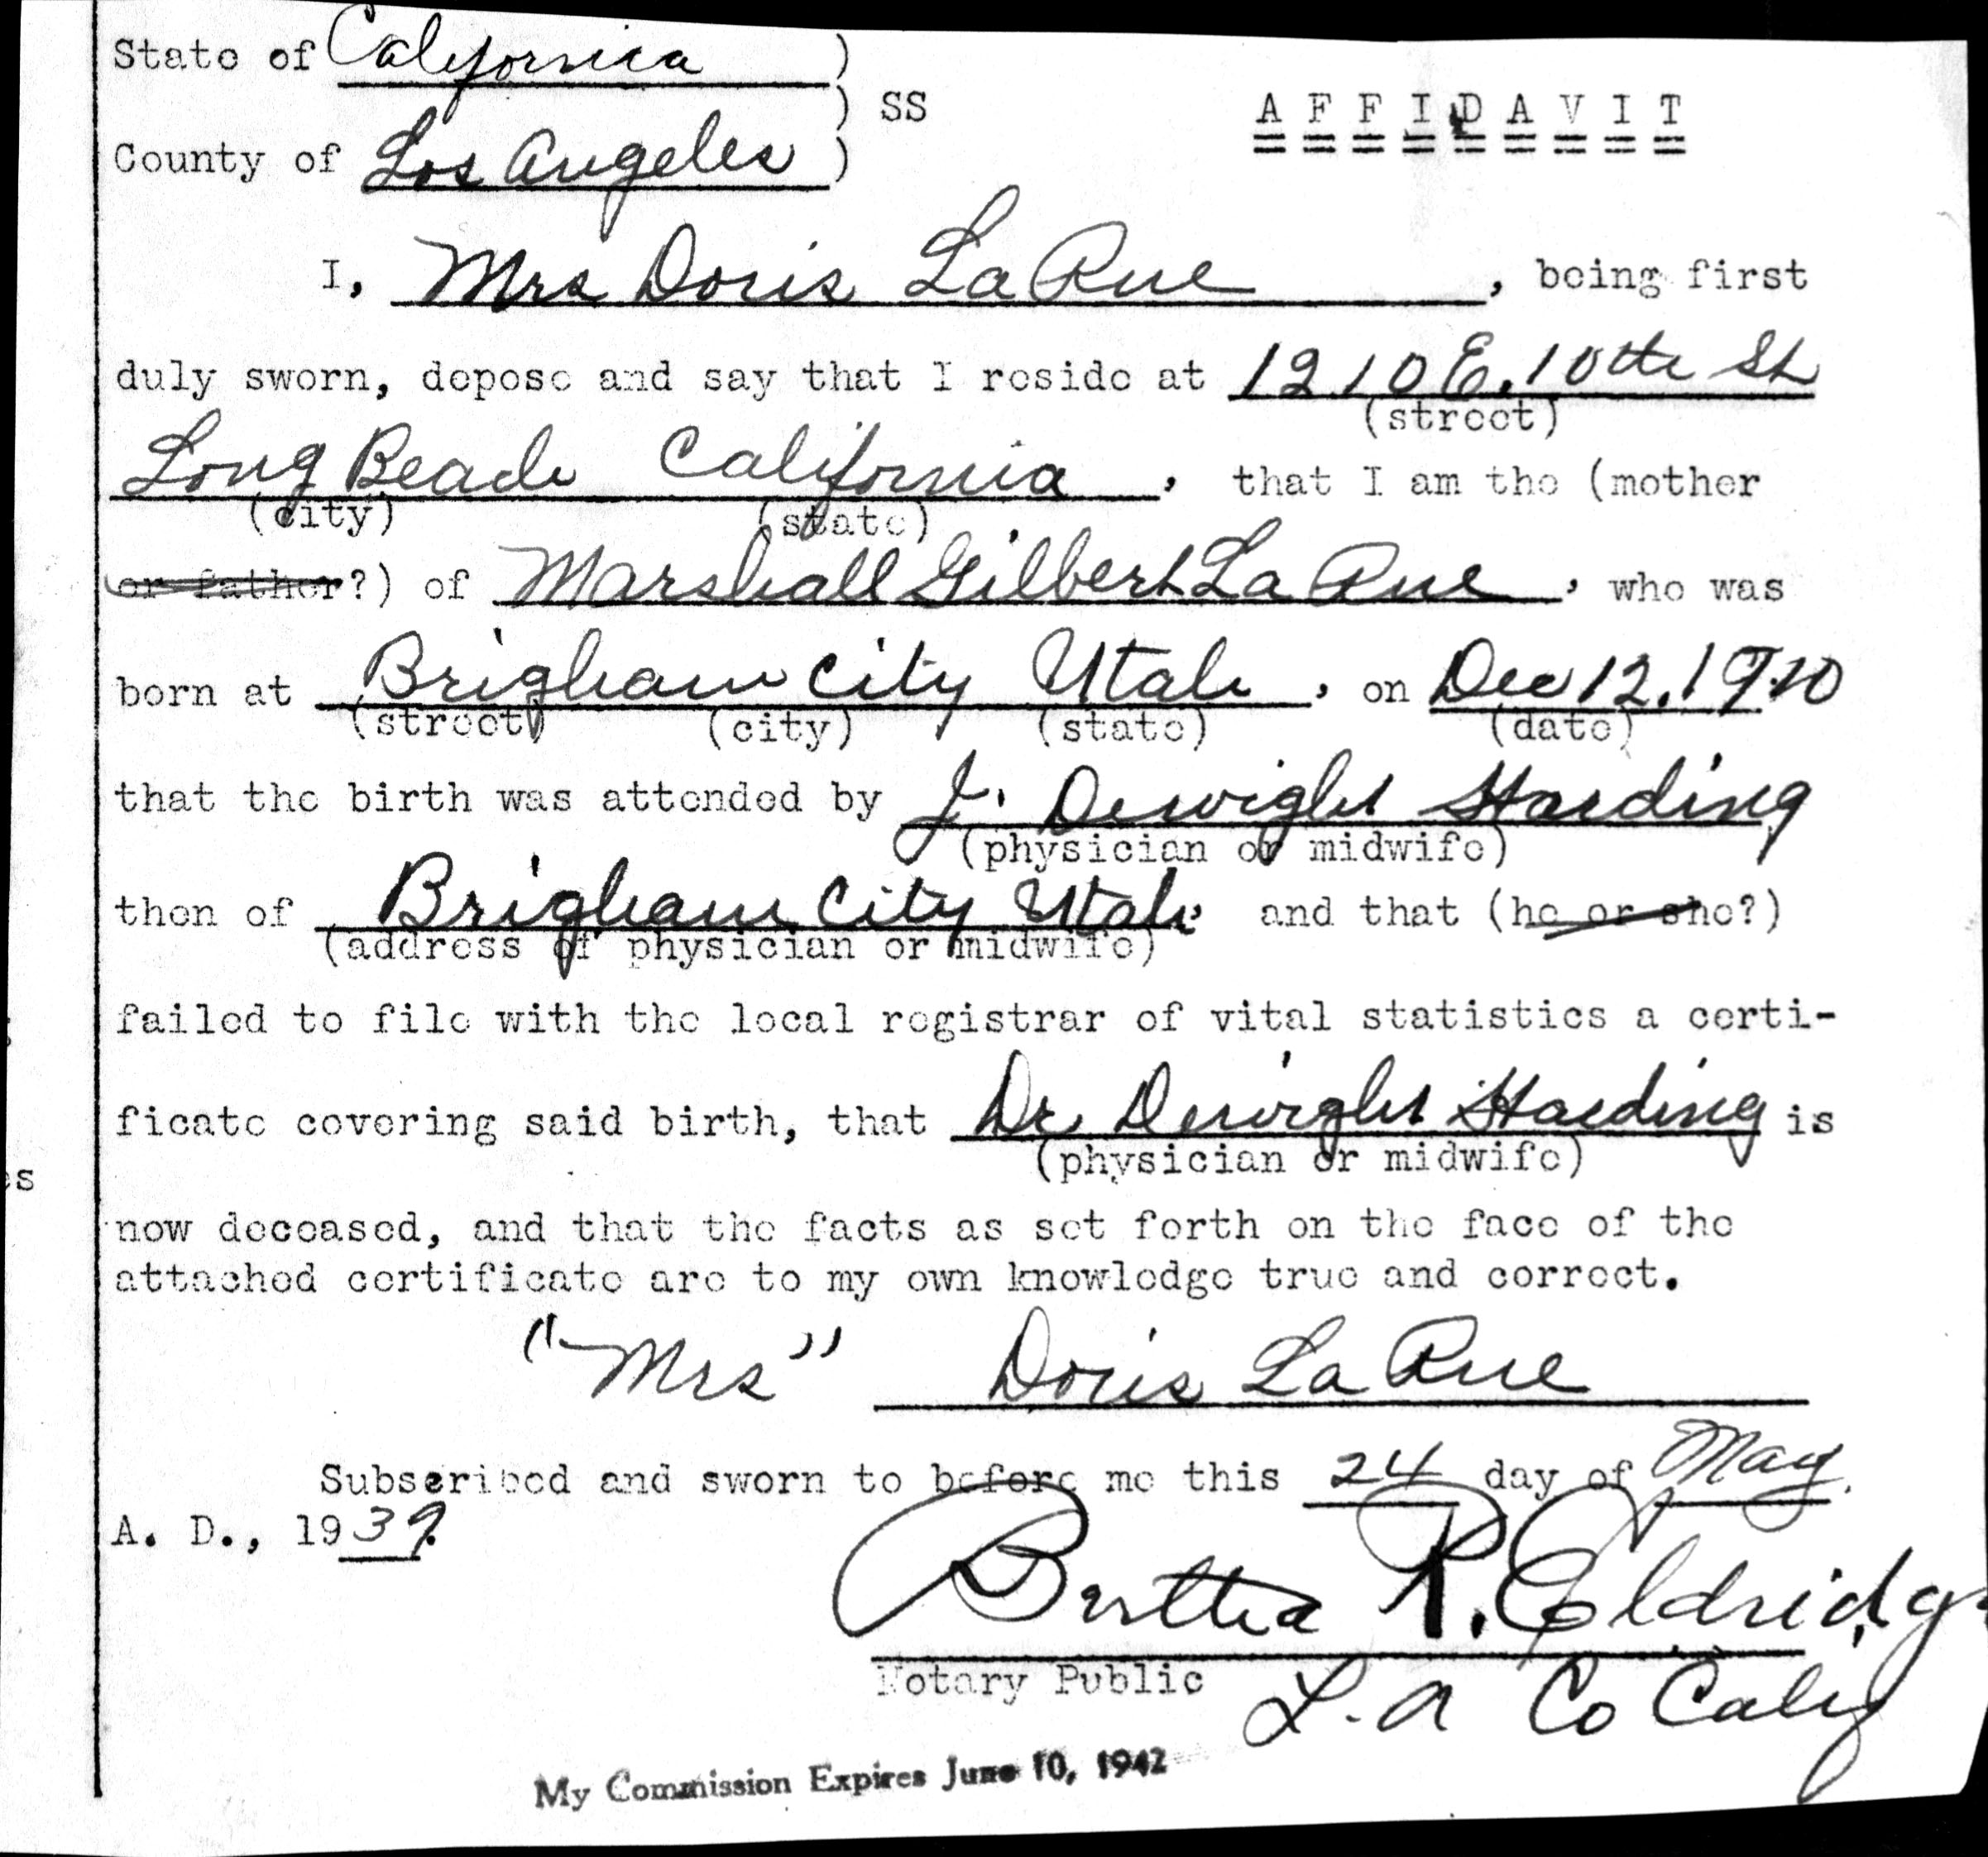 State of California )
) SS
A F F I D A V I T
County of Los Angeles )
I, Mrs Doris La Rue , being first
duly sworn, depose and say that I reside at 1210 E. 10th St
(street)
Long Beach California , that I am the (mother
(city) (state)
or father?) of Marshall Gilbert La Rue , who was
born at Brigham City Utah , on Dec 12, 1920
(street) (city) (state) (date)
that the birth was attended by J. Dewight Harding
(physician or midwife)
then of Brigham City Utah and that (he or she?)
(address of physician or midwife)
failed to file with the local registrar of vital statistics a certi-
ficate covering said birth, that Dr Dewight Harding is
(physician or midwife)
now deceased, and that the facts as set forth on the face of the
attached certificate are to my own knowledge true and correct.
"Mrs" Doris La Rue
Subscribed and sworn to before me this 24 day of May.
A. D., 1939.
Bertha R. Eldridge
Notary Public L. A Co Calif
My Commission Expires June 10, 1942